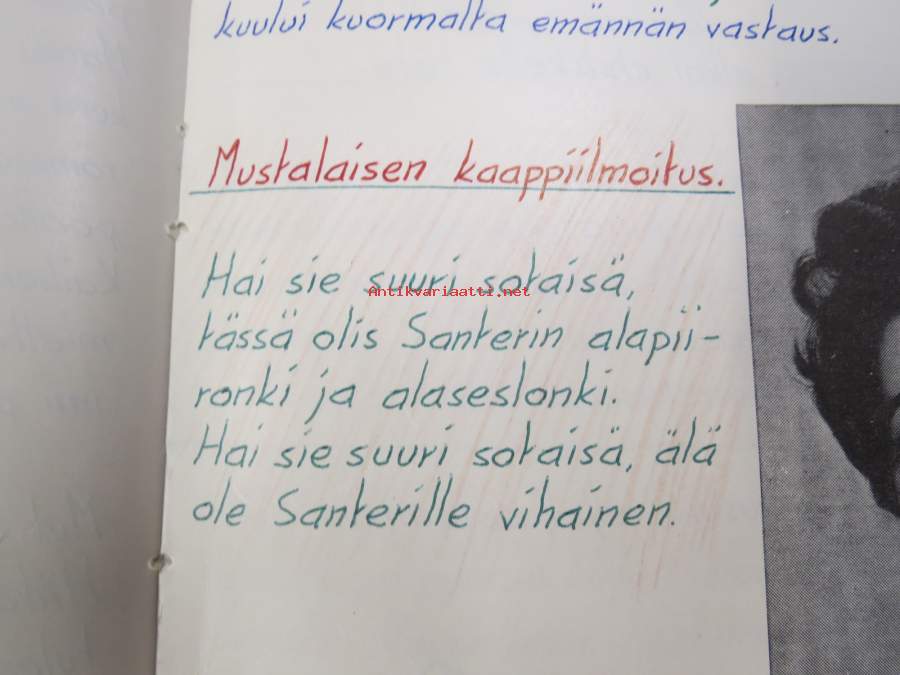 kuului kuormalta emännän vastaus.
Mustalaisen kaappiilmoitus.
Hai sie suuri sotaisä,
Antikvariaatti.net
tässä olis Santerin alapii-
ronki ja alaseslonki.
Hai sie suuri sotaisä, älä
ole Santerille vihainen.